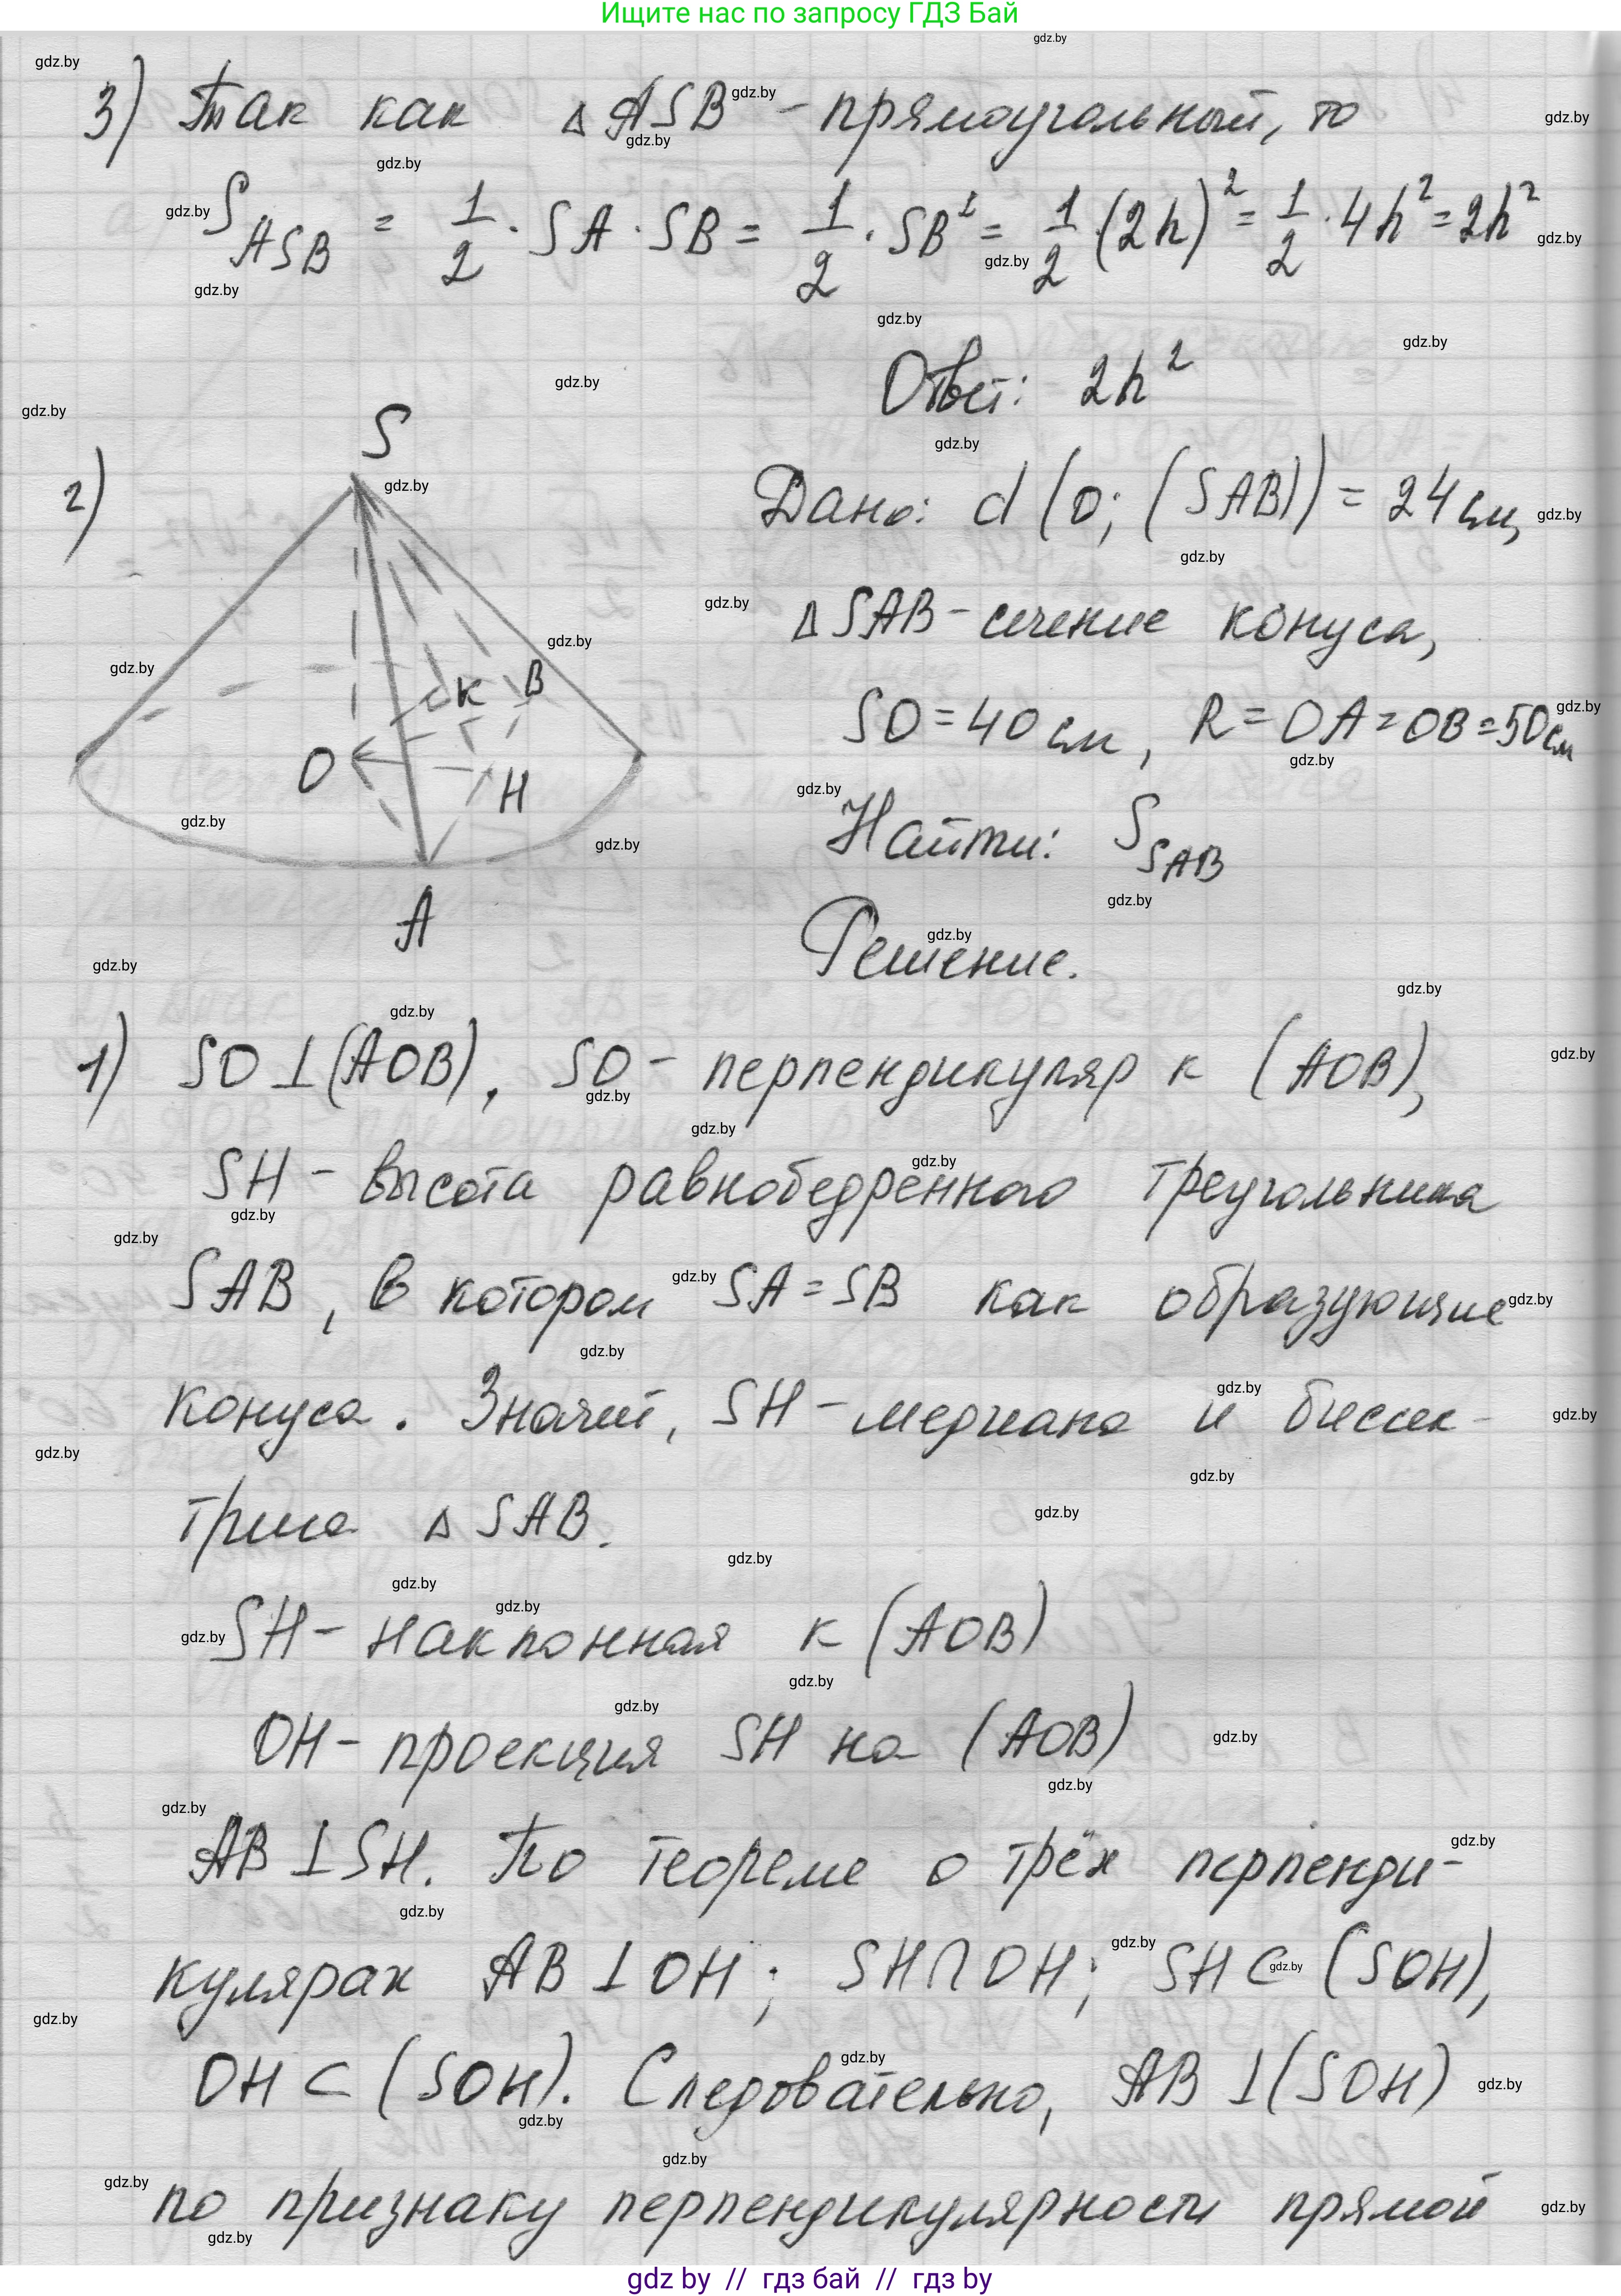 Ищите нас по запросу ГДЗ Бай
3) Так как △ASB - прямоугольный, то
S_ASB = 1/2 · SA · SB = 1/2 · SB² = 1/2 (2h)² = 1/2 · 4h² = 2h²
Ответ: 2h²
2)
S
K
B
O
H
A
Дано: d(O; (SAB)) = 24 см,
△SAB - сечение конуса,
SO = 40 см, R = OA = OB = 50 см
Найти: S_SAB
Решение.
1) SO ⊥ (AOB), SO - перпендикуляр к (AOB),
SH - высота равнобедренного треугольника
SAB, в котором SA = SB как образующие
конуса. Значит, SH - медиана и биссек-
триса △SAB.
SH - наклонная к (AOB)
OH - проекция SH на (AOB)
AB ⊥ SH. По теореме о трёх перпенди-
кулярах AB ⊥ OH; SH ∩ OH; SH ⊂ (SOH),
OH ⊂ (SOH). Следовательно, AB ⊥ (SOH)
по признаку перпендикулярности прямой
gdz by // гдз бай // гдз by